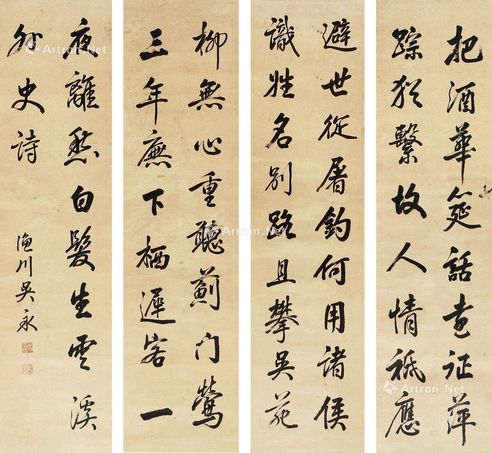 把酒華筵話遠征萍
踪猶繫故人情祗應
避世從屠釣何用諸侯
識姓名別路且攀吳苑
柳無心重聽薊门鶯
三年廡下栖遲客一
夜離愁白髮生雲溪
外史詩
漁川吳永
Artron.Net
Artron.Net
Artron.Net